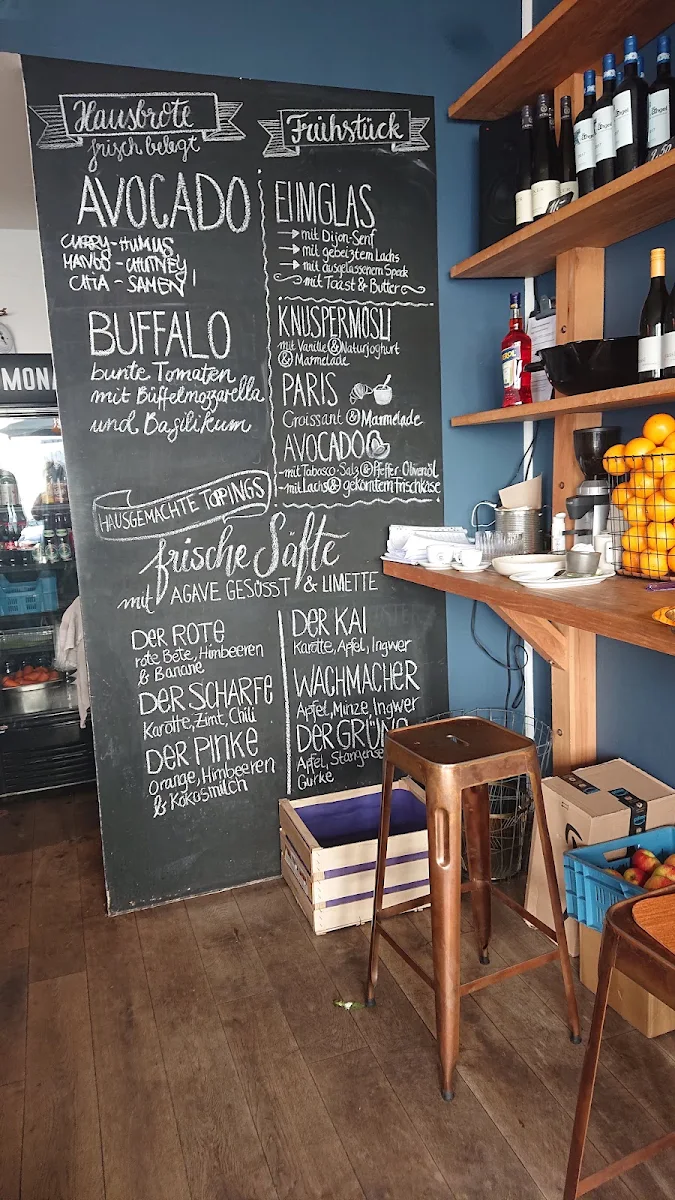 Hausbrote
frisch belegt
AVOCADO
CURRY-HUMUS
MANGO-CHUTNEY
CHIA-SAMEN
BUFFALO
bunte Tomaten
mit Büffelmozzarella
und Basilikum
HAUSGEMACHTE TOPINGS
Frühstück
EI IM GLAS
→ mit Dijon-Senf
→ mit gebeiztem Lachs
→ mit ausgelassenem Speck
mit Toast & Butter
KNUSPERMÜSLI
mit Vanille & Naturjoghurt
& Marmelade
PARIS
Croissant & Marmelade
AVOCADO
- mit Tabasco-Salz & Pfeffer Olivenöl
- mit Lachs & gekörntem Frischkäse
frische Säfte
mit AGAVE GESÜSST & LIMETTE
DER ROTE
rote Bete, Himbeeren
& Banane
DER SCHARFE
Karotte, Zimt, Chili
DER PINKE
Orange, Himbeeren
& Kokosmilch
DER KAI
Karotte, Apfel, Ingwer
WACHMACHER
Apfel, Minze, Ingwer
DER GRÜNE
Apfel, Stangense
Gurke
MONA